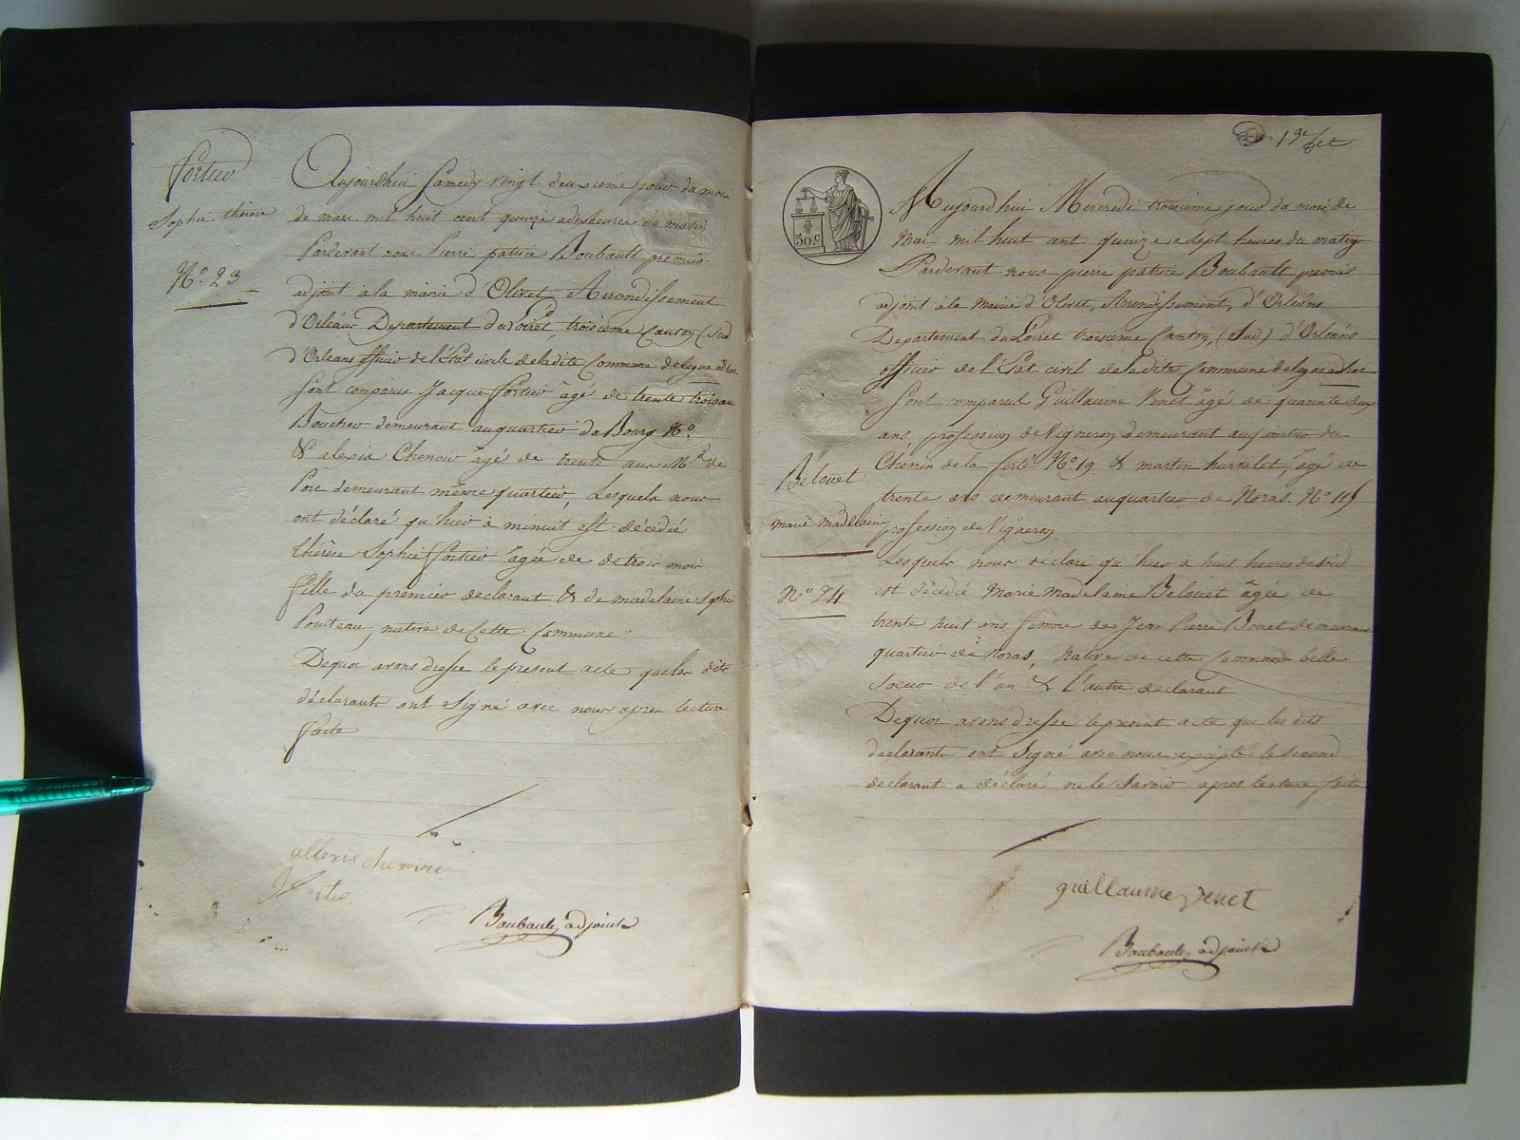 Fortier
Sophie thérèse
N° 23
Aujourdhui samedy vingt deuxieme jour du mois
de mars mil huit cent quinze a dix heures du matin
Pardevant nous Pierre patrice Boubault premier
adjoint à la mairie d'Olivet, Arrondissement
d'Orléans Departement du Loiret, troisieme Canton (Sud
d'Orleans officier de l'Etat civile de la dite Commune
sont comparus Jacque fortier âgé de trente trois ans
Boucher demeurant au quartier du Bourg N°
& alexis Chenou âgé de trente ans Md de
Porc demeurant même quartier, Lesquels nous
ont déclaré qu'hier à minuit est décédé
thérèse Sophie fortier âgée de de trois mois
fille du premier declarant & de madelaine Sophie
Pouteau, native de Cette Commune
Dequoi avons dresse le present acte que les dits
déclarants ont signé avec nous apres lecture
faite
allexis
Boubault, adjoint
19e
50 c
Belouet
marie madelaine
N° 24
Aujourdhui Mercredi troisieme jour du mois de
Mai mil huit cent quinze a sept heures du matin
Pardevant nous pierre patrice Boubault premier
adjoint à la mairie d'Olivet, Arondissement, d'Orléans
Departement du Loiret troisieme Canton, (Sud) d'Orleans
officier de l'Etat civil de la dite Commune
sont comparus Guillaume Venet âgé de quarante deux
ans, profession de Vigneron demeurant au quartier du
Chemin de la ferté N° 19 & martin âgé de
trente ans demeurant au quartier de Noras N° 115
profession de Vigneron
Lesquels nous declaré qu'hier a huit heures du soir
est décédé Marie Madelaine Belouet âgée de
trente huit ans femme de Jean Pierre demeurant
quartier de Noras, native de cette Commune belle
soeur de l'un & l'autre declarant
Dequoi avons dresse le present acte que les dits
declarants ont signé avec nous excepté le second
declarant a déclaré ne le savoir apres lecture faite
guillaume venet
Boubault, adjoint